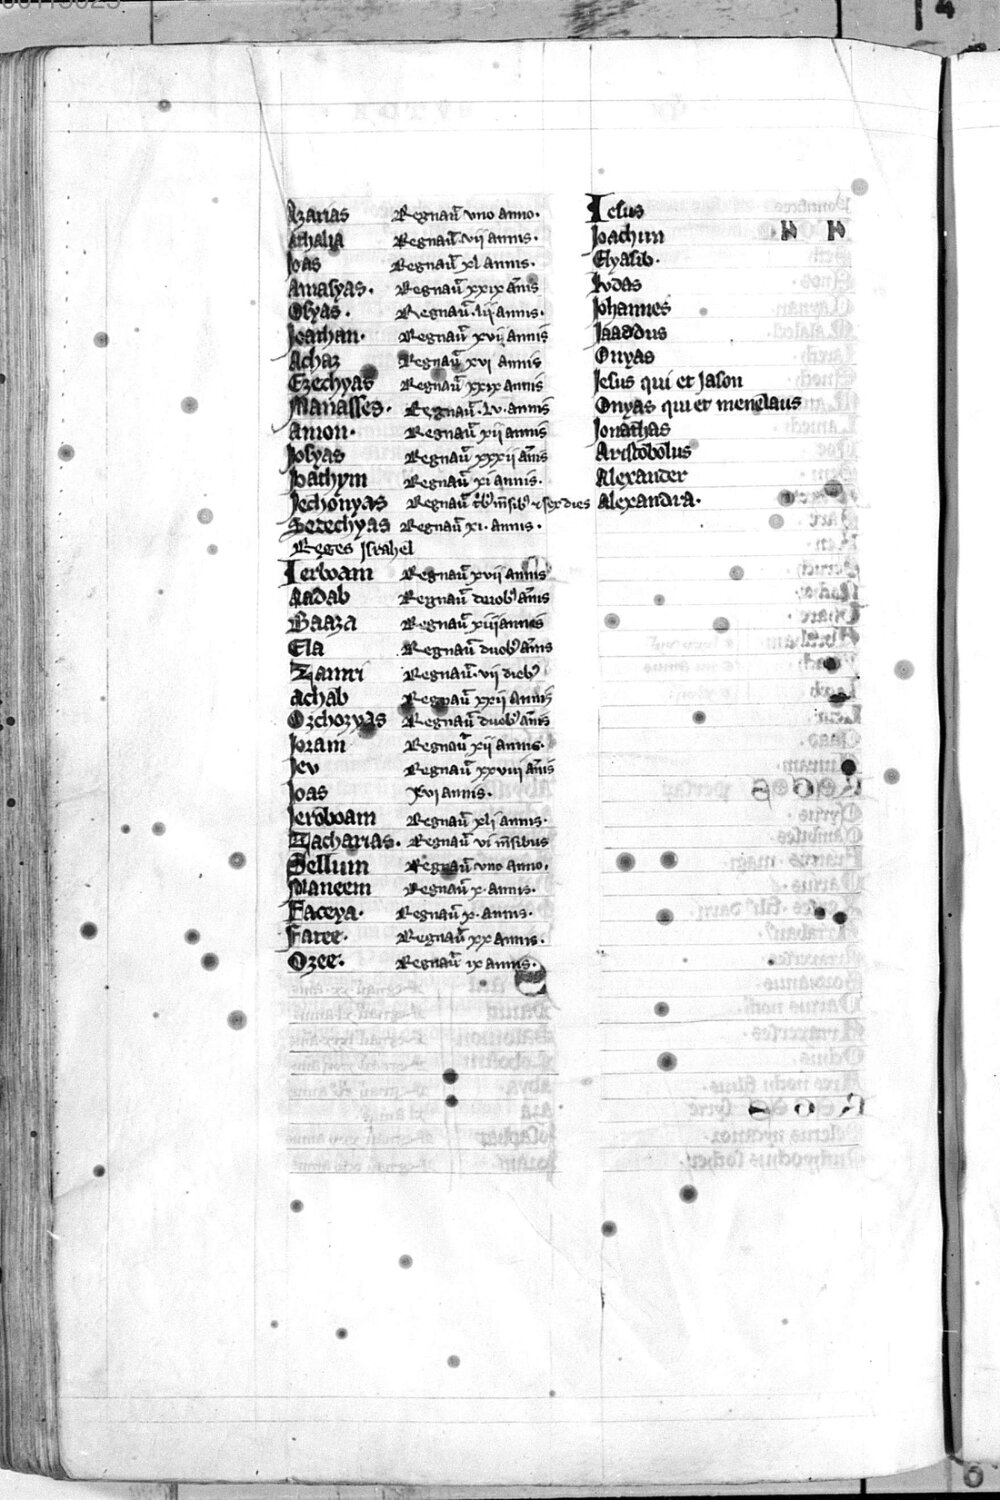 Azarias Regnaũ vno anno.
Athalia Regnaũ. vii annis.
Joas Regnaũ xl annis.
Amasyas. Regnaũ xxix annis
Osyas. Regnaũ. lii annis.
Joathan. Regnaũ xvii annis
Achaz Regnaũ xvi annis
Ezechyas Regnaũ xxix annis
Manasses. Regnaũ. lv. annis
Amon. Regnaũ xii annis
Josyas Regnaũ xxxii ãnis
Joachym Regnaũ xi annis.
Jechonyas Regnaũ tͥbꝰ m̃sibꝰ et sex dies
Sedechyas Regnaũ xi. annis.
Reges Israhel
Ieroboam Regnaũ xvii annis
Nadab Regnaũ duobꝰ ãnis
Baaza Regnaũ xiiij annis
Ela Regnaũ duobꝰ ãnis
Zamri Regnaũ. vii diebꝰ
Achab Regnaũ xxii annis
Ozchozyas Regnaũ duobꝰ ãnis
Joram Regnaũ xii annis.
Jev Regnaũ xxviii ãnis
Joas xvi annis.
Jeroboam Regnaũ xli annis.
Zacharias. Regnaũ vi m̃sibus
Sellum Regnaũ vno anno.
Maneem Regnaũ x. annis.
Faceya. Regnaũ x. annis.
Facee. Regnaũ xx annis.
Ozee. Regnaũ ix annis.
Iesus
Joachim
Elyasib.
Jvdas
Johannes
Jaaddus
Onyas
Jesus qui et Jason
Onyas qui et menelaus
Jonathas
Aristobolus
Alexander
Alexandra.